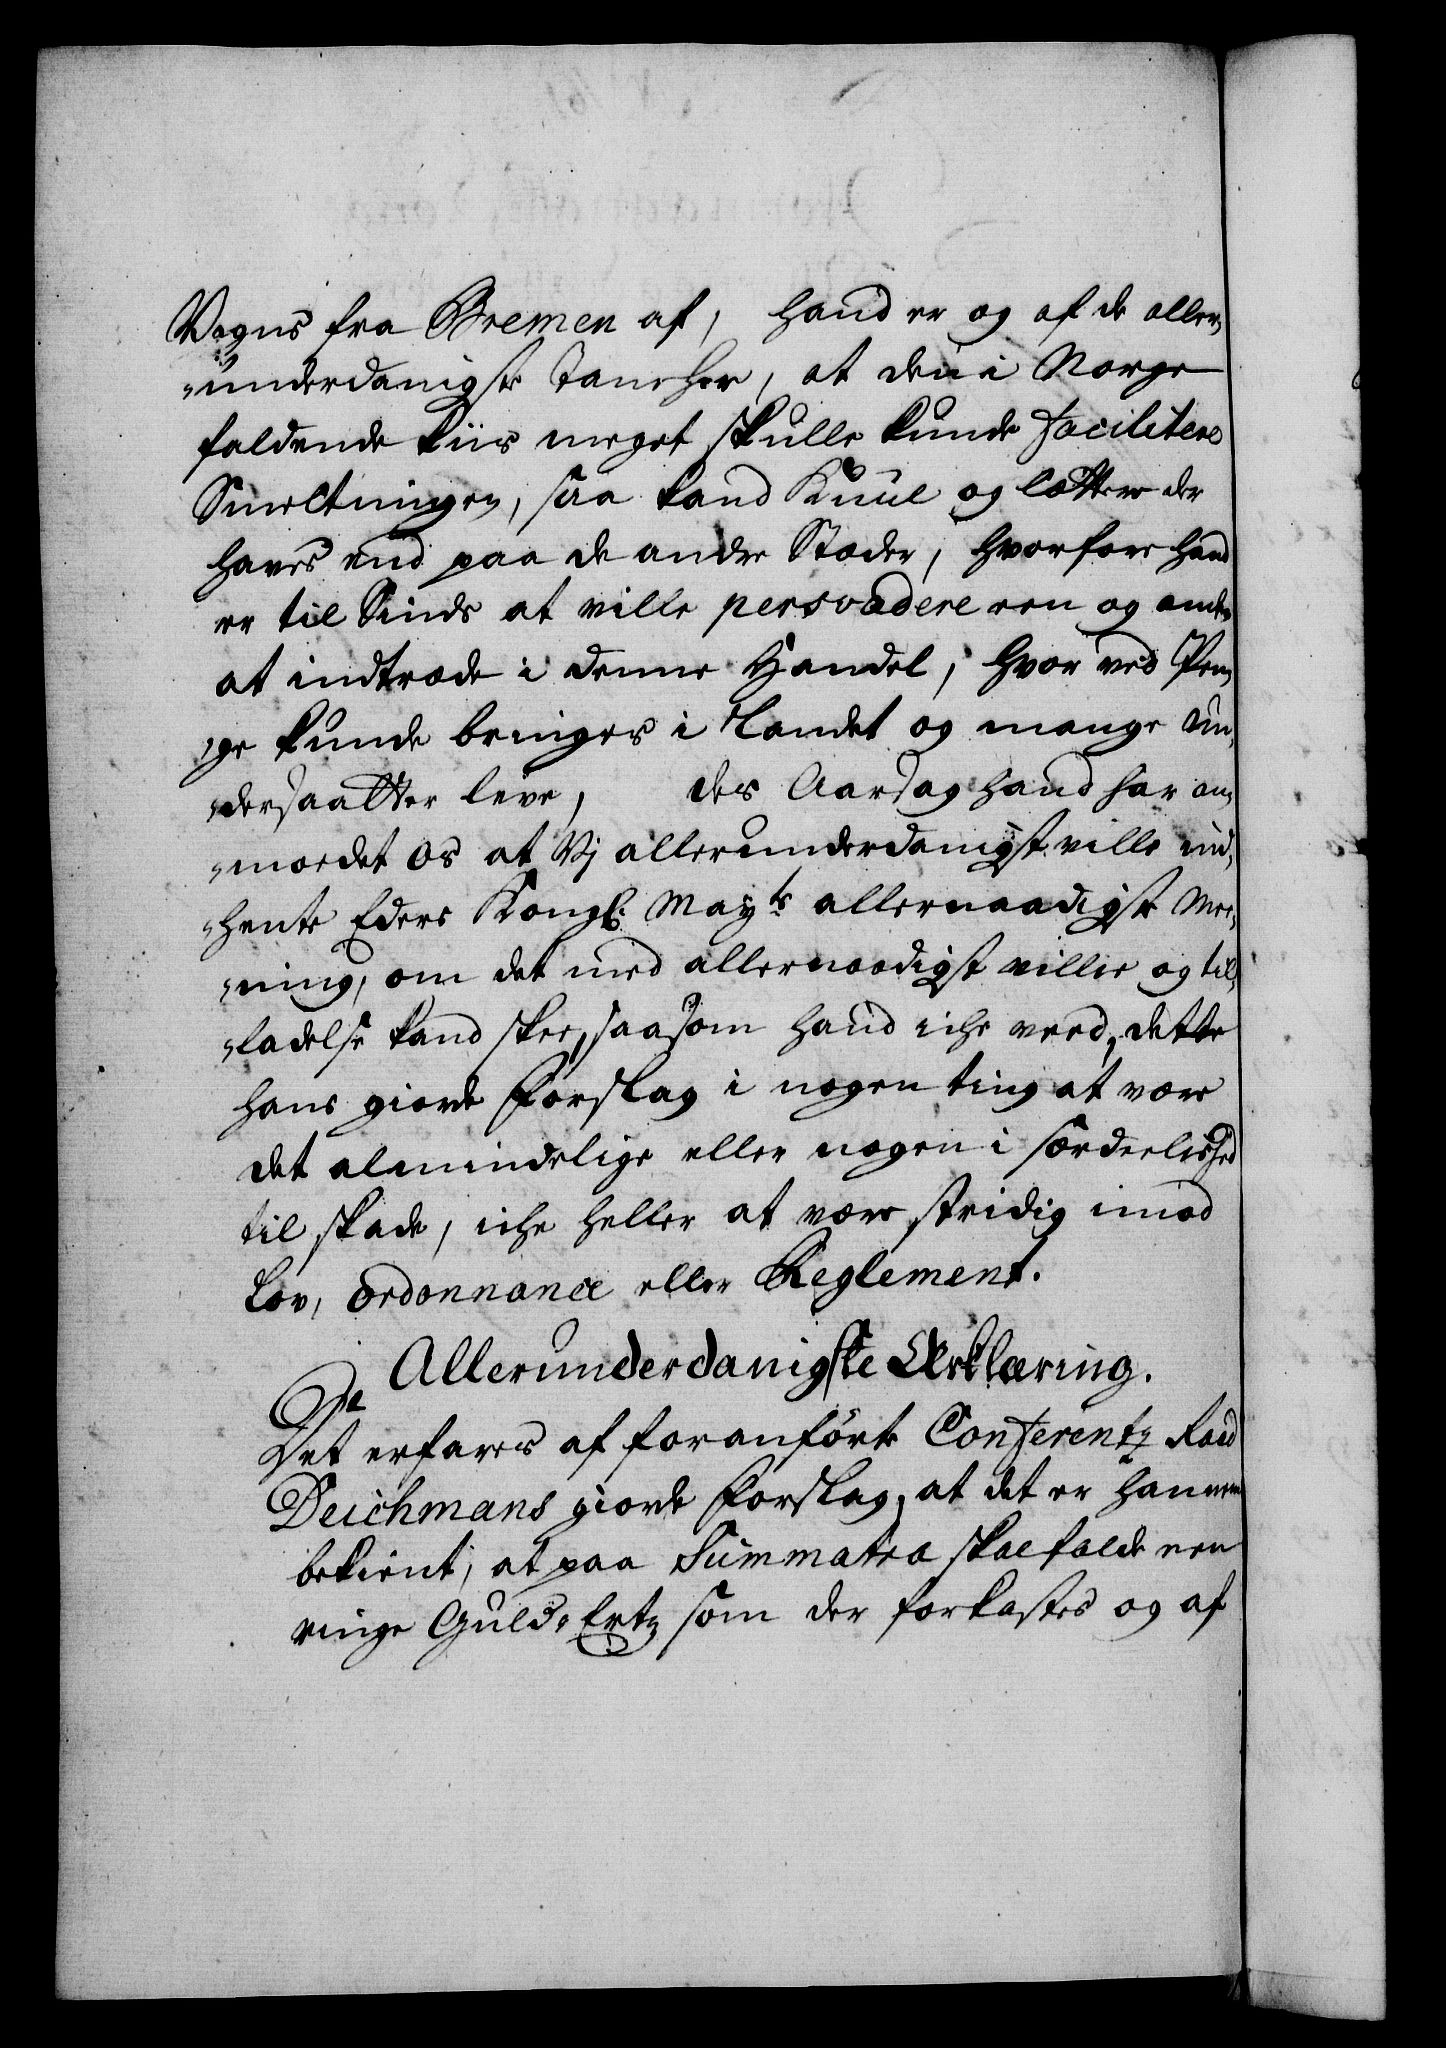 Vegns fra Bremen af, hand er og af de aller-
underdanigste Tancher, at den i Norge
faldende Kiis meget skulle kunde facilitere
Smeltningen, saa kand Kuul og lættere der
haves end paa de andre Stæder, hvorfore hand
er til Sinds at ville persvadere een og anden
at indtræde i denne Handel, hvor ved Pen-
-ge kunde bringes i Landet og mange Un-
-dersaatter leve, des Aarsag hand har an-
-moedet os at Vj allerunderdanigst ville ind-
-hente Eders Kongl: Mayts allernaadigste Mee-
-ning, om det med allernaadigst villie og til-
-ladelse kand skee, saasom hand iche veed, dette
hans giorde Forslag i nogen ting at være
det almindelige eller nogen i særdeelished
til skade, iche heller at være stridig imod
Lov, ordonnance eller Reglement.
Allerunderdanigste Erklæring.
Det erfares af foranførte Conferentz Raad
Deichmans giorde Forslag, at det er hannem
bekient, at paa Summatra skal falde een
ringe Guld-Ertz som der forkastes og af